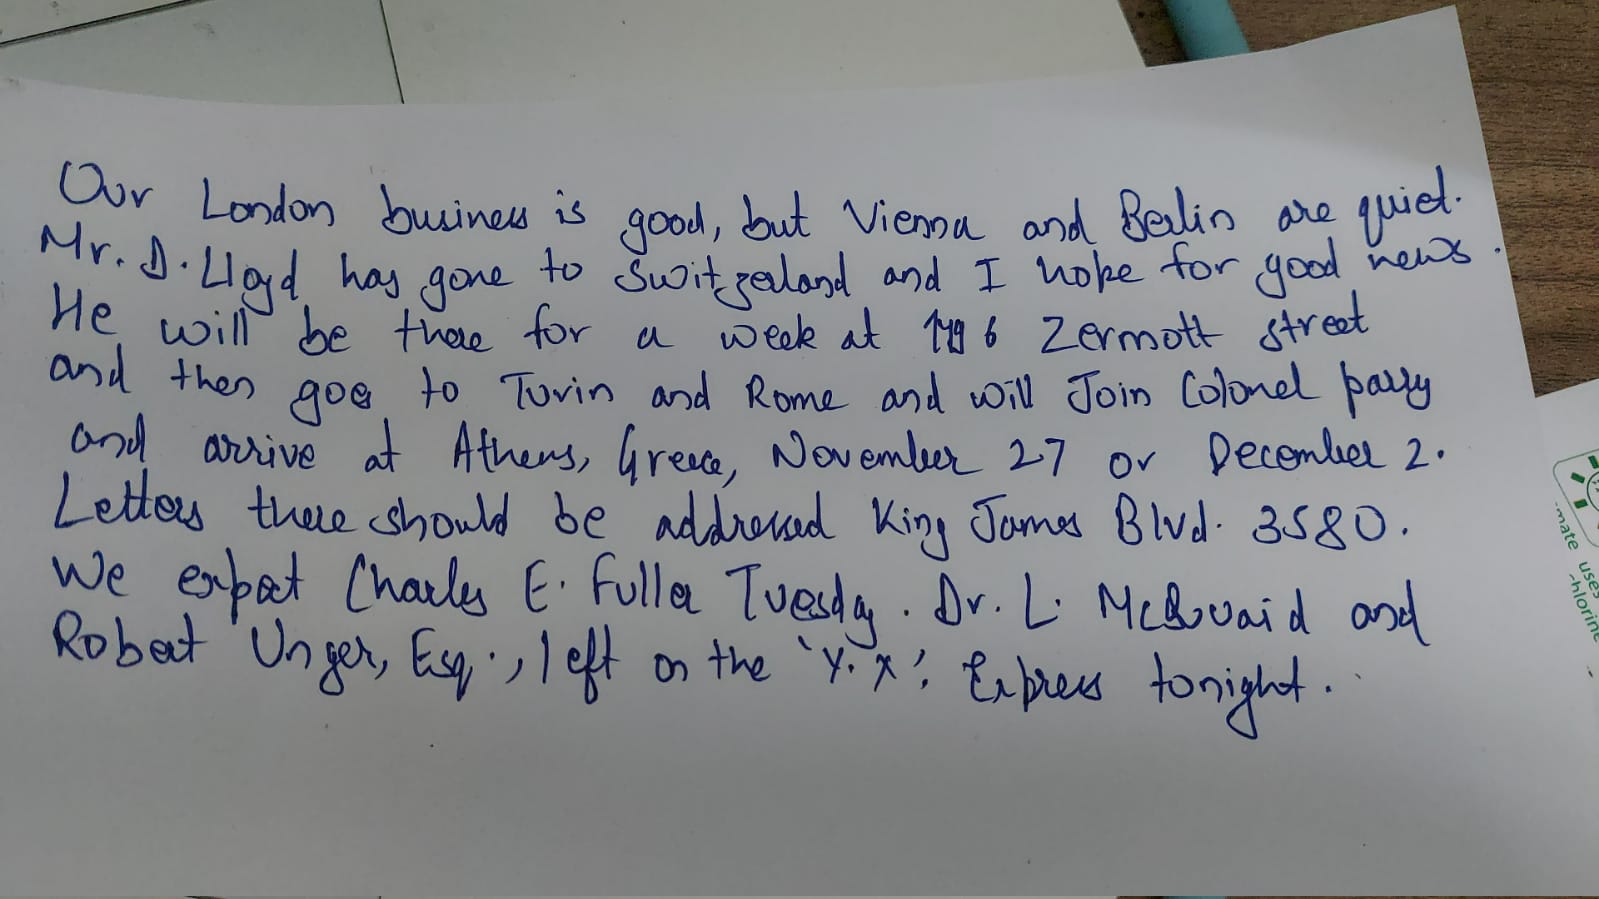 Our London business is good, but Vienna and Berlin are quiet.
Mr. D. Lloyd has gone to Switzerland and I hope for good news.
He will be there for a week at 1496 Zermott street
and then goes to Turin and Rome and will Join Colonel parry
and arrive at Athens, Greece, November 27 or December 2.
Letters there should be addressed King James Blvd. 3580.
We expect Charles E. Fuller Tuesday. Dr. L. McQuaid and
Robert Unger, Esq., left on the 'Y.X'. Express tonight.
mate uses
chlorine